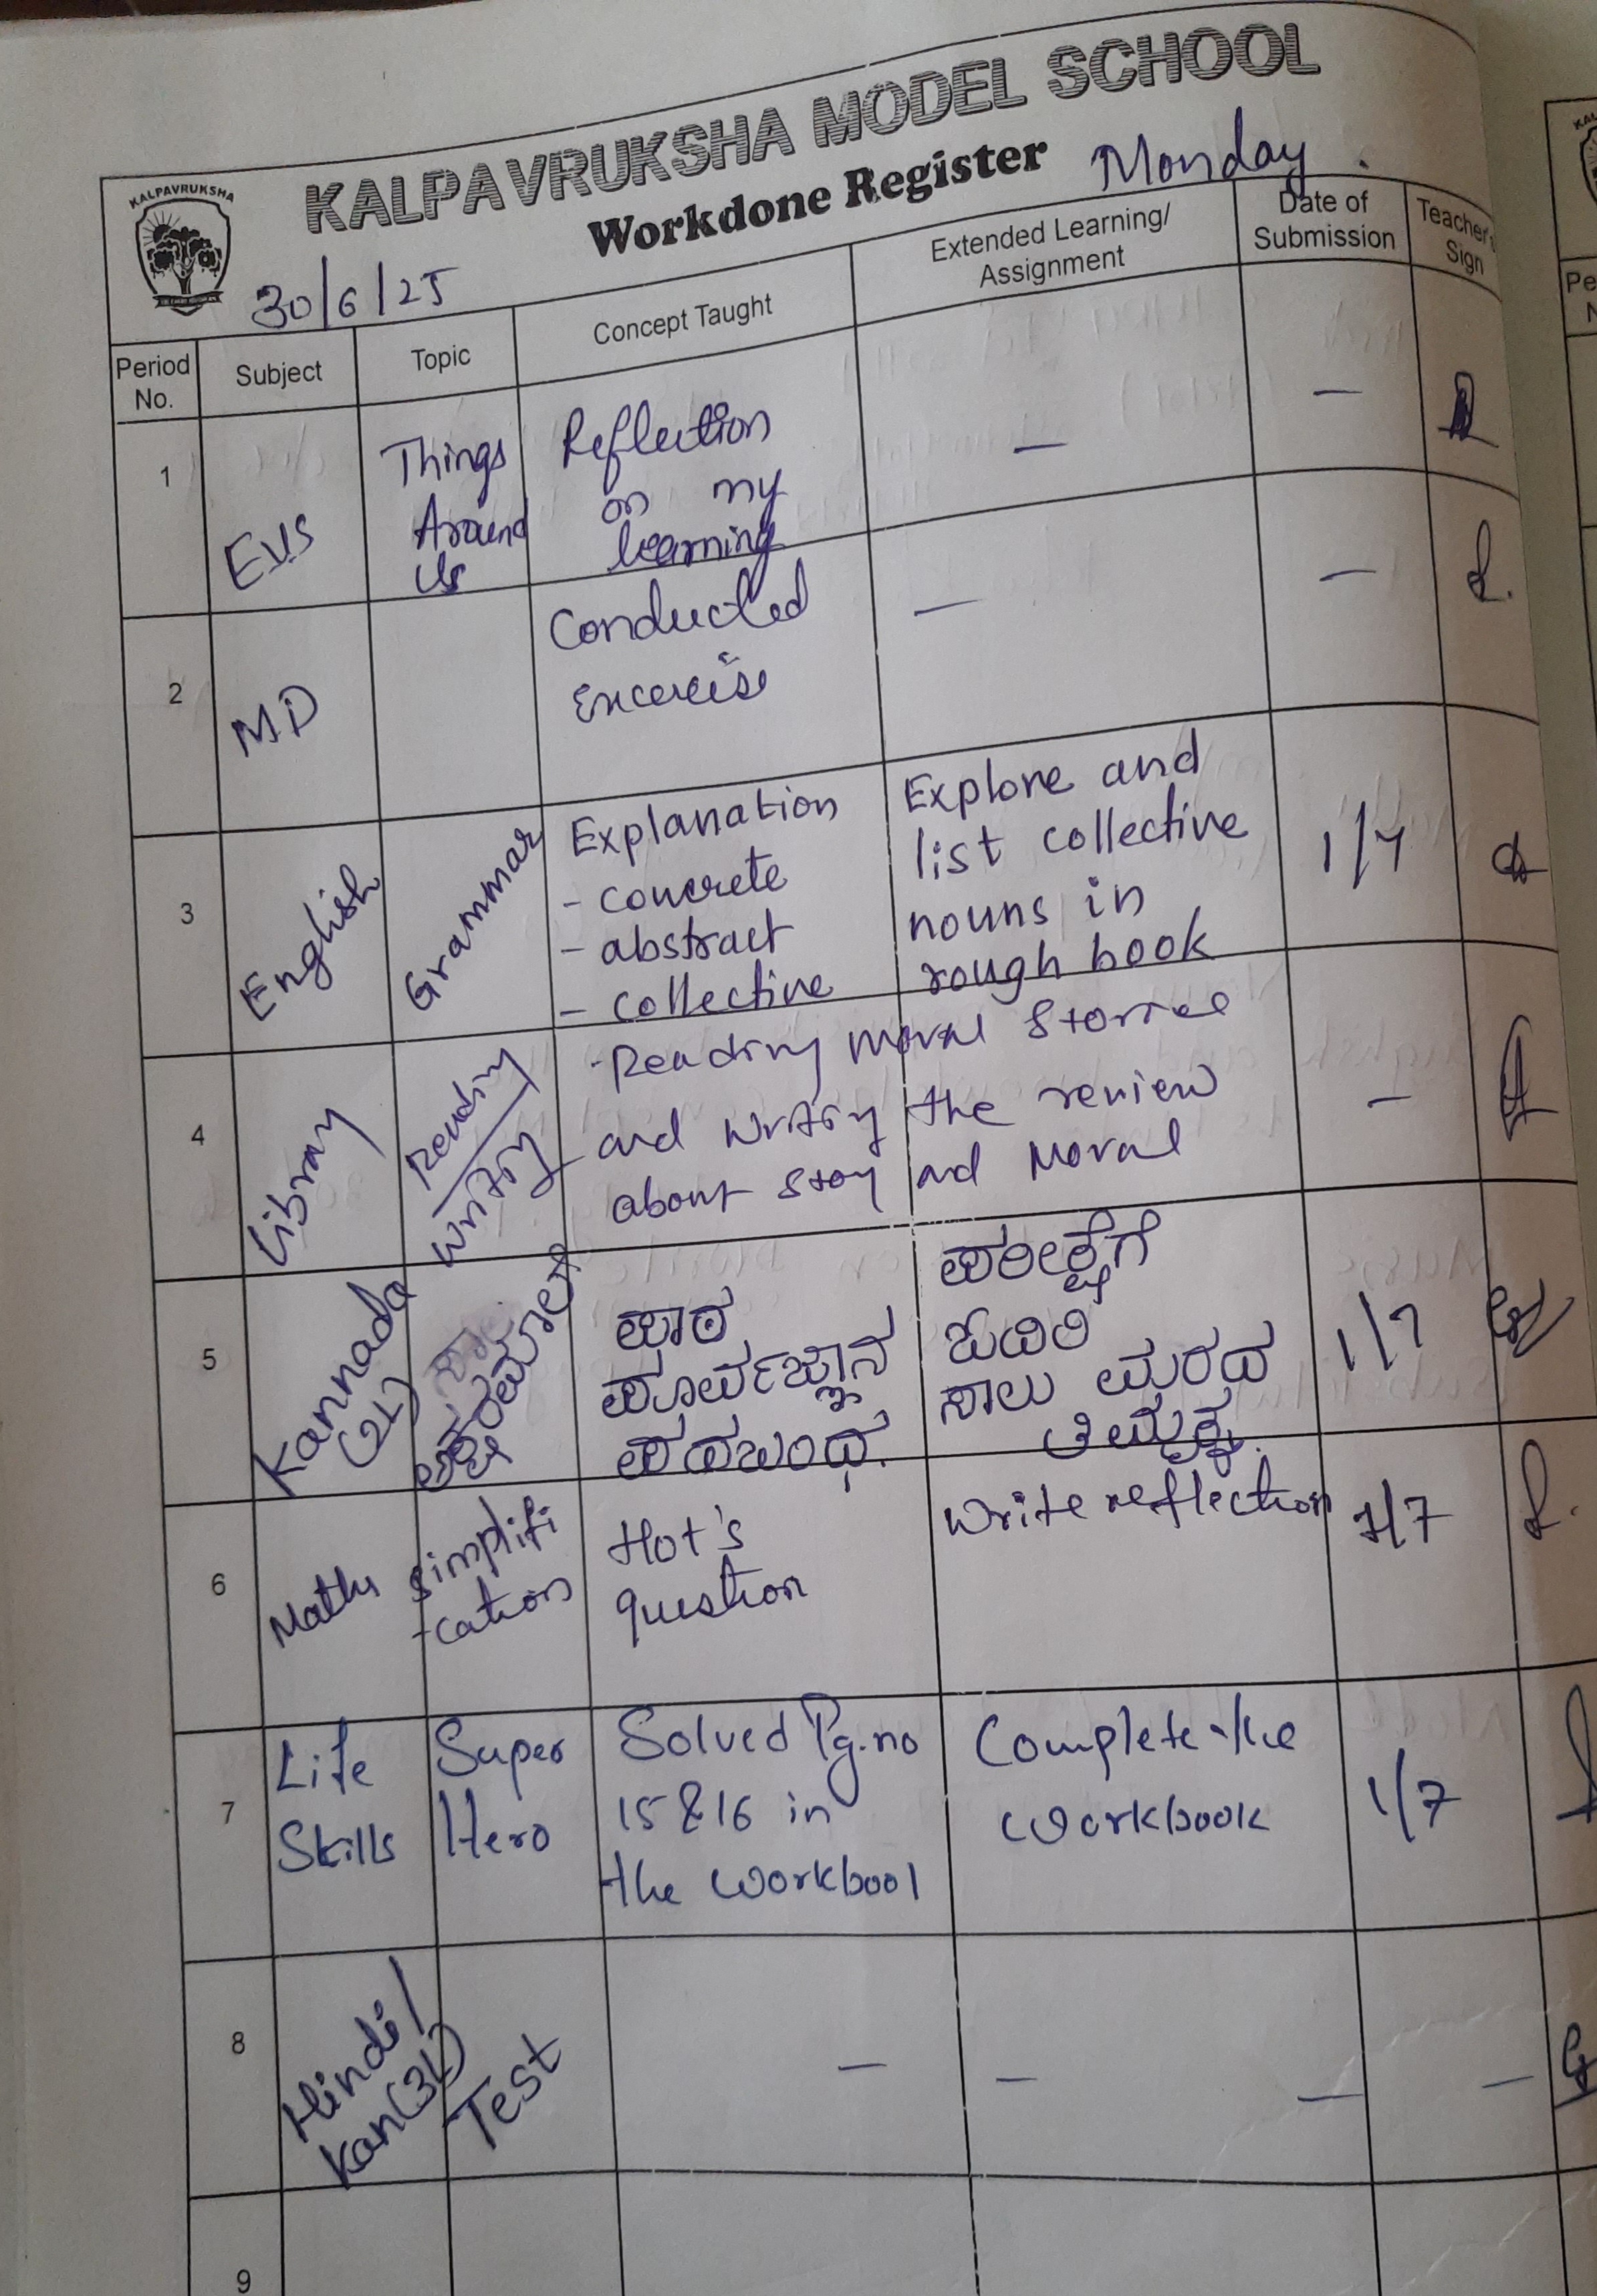 KALPAVRUKSHA
KALPAVRUKSHA MODEL SCHOOL
Workdone Register
Monday.
30/6/25
Period No.
Subject
Topic
Concept Taught
Extended Learning/
Assignment
Date of
Submission
Teacher's
Sign
1
EVS
Things
Around
Us
Reflection
on my
learning
—
—
2
M.D
Conducted
Excercise
—
—
3
English
Grammar
Explanation
- concrete
- abstract
- collective
Explore and
list collective
nouns in
rough book
1/7
4
Library
Reading
writing
-Reading moral stories
and writing the review
about story and Moral
—
5
Kannada
(2L)
ಪಾಠ
ಪೂರ್ವಜ್ಞಾನ
ಪದಬಂಧ.
ಪರೀಕ್ಷೆಗೆ
ಓದಿರಿ
ಸಾಲು ಮರದ
ತಿಮ್ಮಕ್ಕ.
1/7
6
Maths
simplifi
-cation
Hot's
question
Write reflection
1/7
7
Life
Skills
Super
Hero
Solved Pg.no
15 & 16 in
the workbool
Complete the
workbook
1/7
8
Hindi/
Kan(3L)
Test
—
—
—
—
9